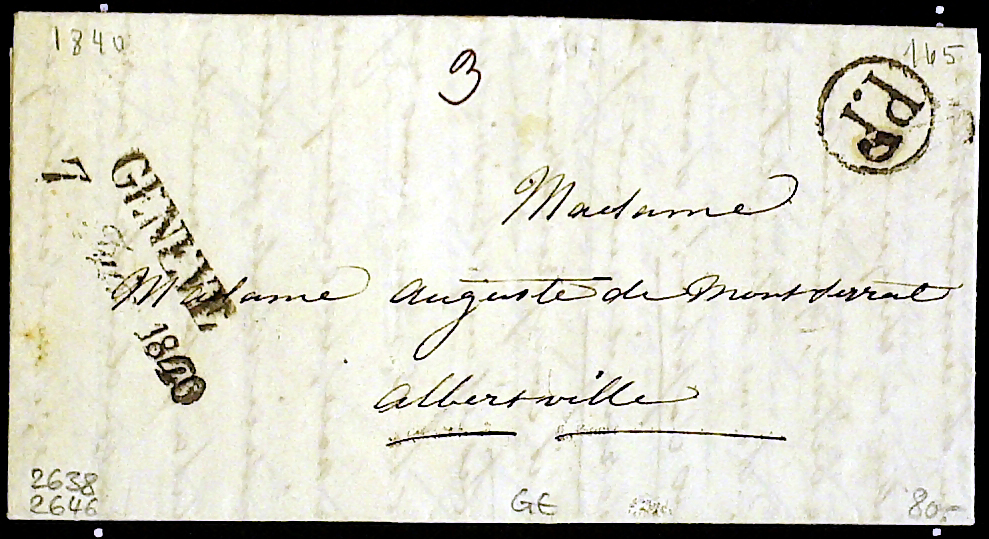 1840
3
165
P.P.
7
GENEVE
1840
Madame
Madame Auguste de Montferrat
Albertville
2638
2646
GE
80.-